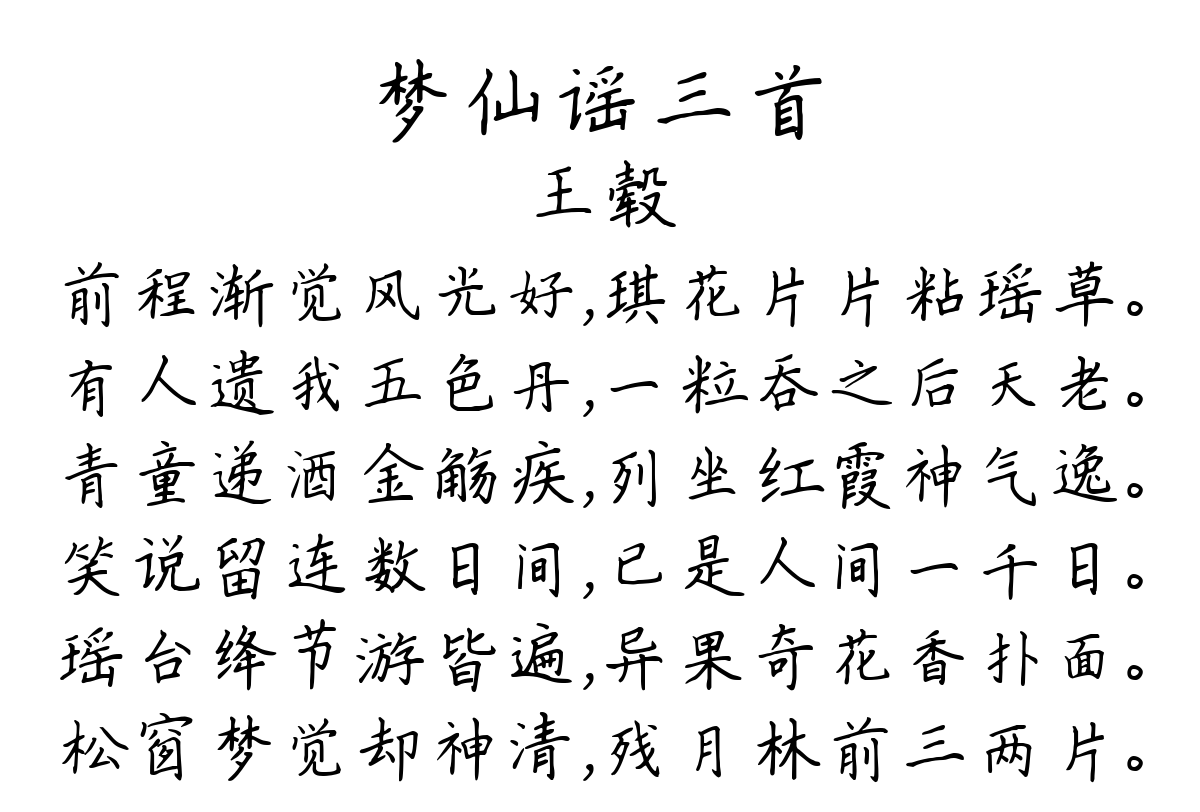 梦仙谣三首
王毂
前程渐觉风光好,琪花片片粘瑶草。
有人遗我五色丹,一粒吞之后天老。
青童递酒金觞疾,列坐红霞神气逸。
笑说留连数日间,已是人间一千日。
瑶台绛节游皆遍,异果奇花香扑面。
松窗梦觉却神清,残月林前三两片。